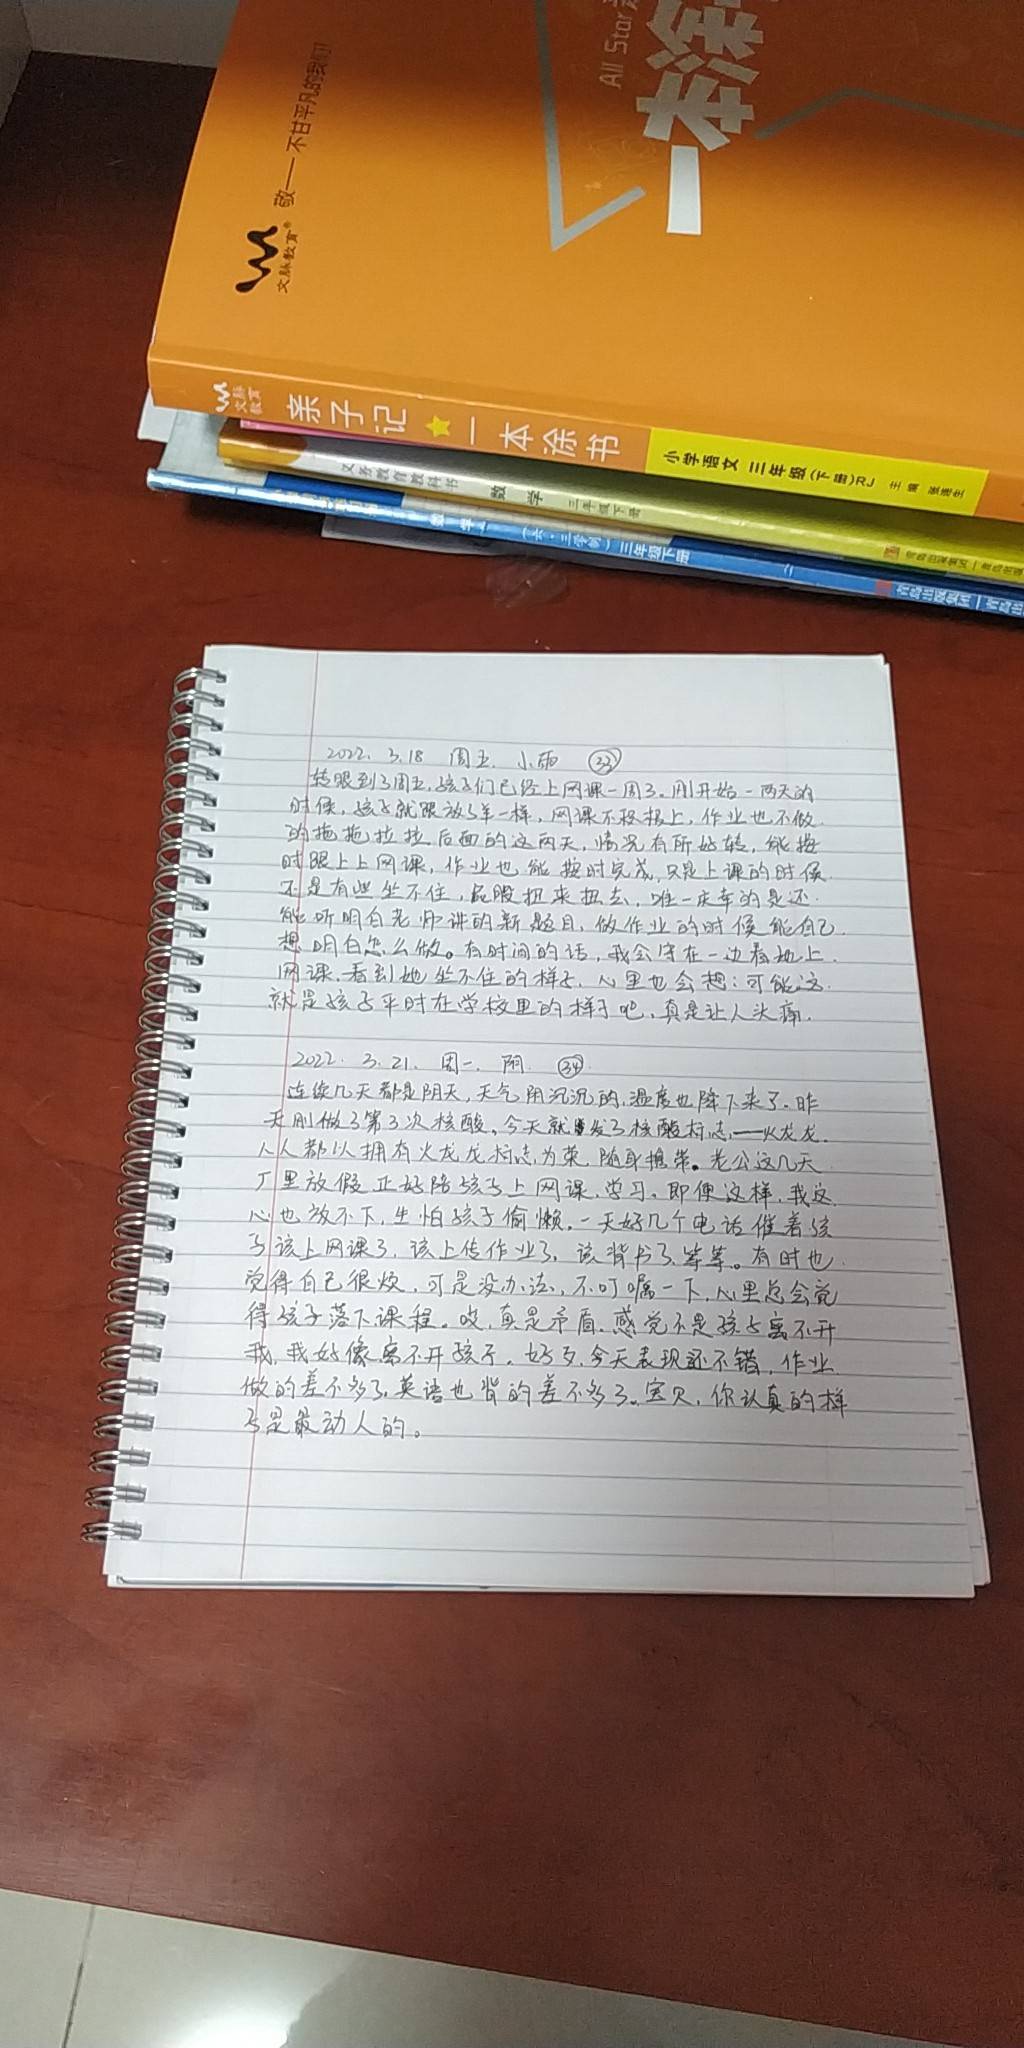 All Star
一本涂
敬——不甘平凡的我们
文脉教育®
文脉教育
亲子记 ★ 一本涂书
小学语文 三年级(下册)RJ 主编 张连生
义务教育教科书 数学 三年级下册
数学 (六·三学制) 三年级下册
2022. 3.18 周五. 小雨 ㉝
转眼到了周五,孩子们已经上网课一周了。刚开始一两天的
时候,孩子就跟放了羊一样,网课不积极上,作业也不做
的拖拖拉拉,后面的这两天,情况有所好转,能按
时跟上上网课,作业也能按时完成,只是上课的时候
还是有些坐不住,屁股扭来扭去,唯一庆幸的是还
能听明白老师讲的新题目,做作业的时候能自己
想明白怎么做。有时间的话,我会守在一边看她上
网课,看到她坐不住的样子,心里也会想:可能这
就是孩子平时在学校里的样子吧,真是让人头痛.
2022. 3.21. 周一. 阴. ㉞
连续几天都是阴天,天气阴沉沉的,温度也降下来了.昨
天刚做了第3次核酸,今天就发了核酸标志,——火龙龙.
人人都以拥有火龙龙标志为荣,随身携带。老公这几天
厂里放假正好陪孩子上网课,学习。即便这样,我这
心也放不下,生怕孩子偷懒,一天好几个电话催着孩
子该上网课了,该上传作业了,该背书了,等等。有时也
觉得自己很烦,可是没办法,不叮嘱一下,心里总会觉
得孩子落下课程。哎,真是矛盾,感觉不是孩子离不开
我,我好像离不开孩子,好歹,今天表现还不错,作业
做的差不多了,英语也背的差不多了。宝贝,你认真的样
子是最动人的。